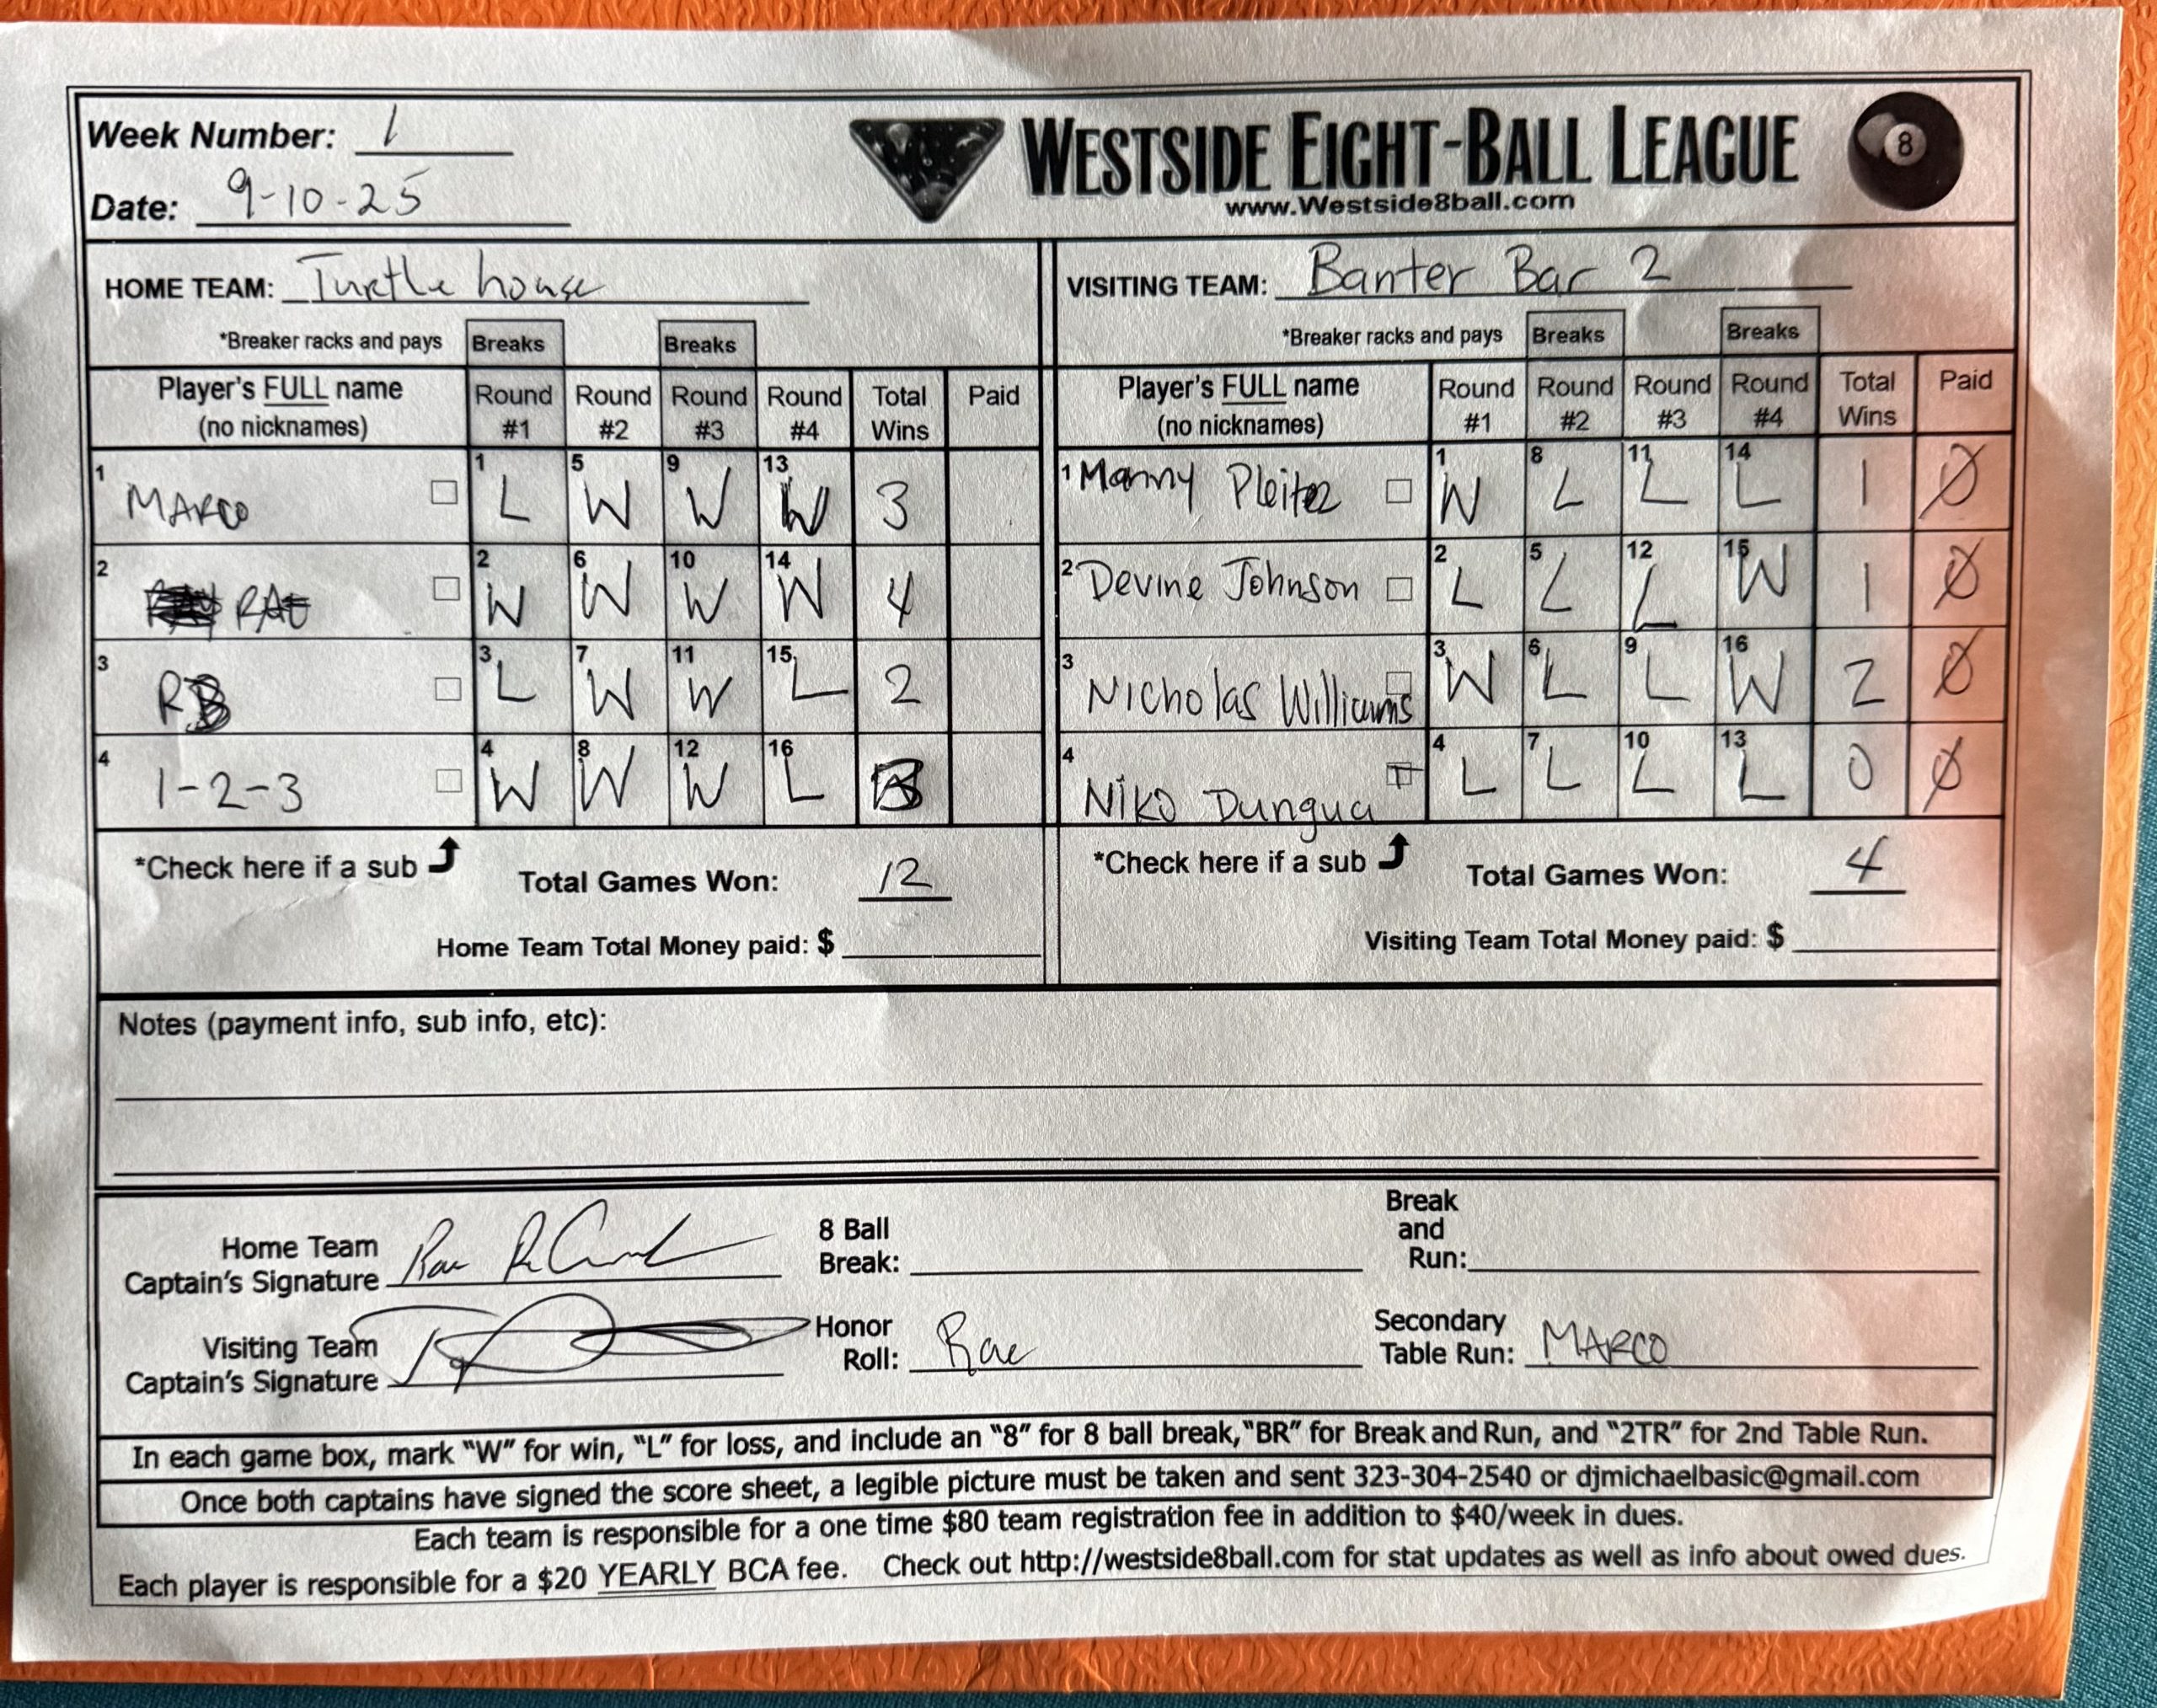 Week Number: 1
Date: 9-10-25
WESTSIDE EIGHT-BALL LEAGUE
www.Westside8ball.com
8
HOME TEAM: Turtle house
VISITING TEAM: Banter Bar 2
*Breaker racks and pays Breaks Breaks
*Breaker racks and pays Breaks Breaks
Player's FULL name (no nicknames) Round #1 Round #2 Round #3 Round #4 Total Wins Paid
1 MARCO 1 L 5 W 9 W 13 W 3
2 RAE 2 W 6 W 10 W 14 W 4
3 RB 3 L 7 W 11 W 15 L 2
4 1-2-3 4 W 8 W 12 W 16 L 3
*Check here if a sub
Total Games Won: 12
Home Team Total Money paid: $
Player's FULL name (no nicknames) Round #1 Round #2 Round #3 Round #4 Total Wins Paid
1 Manny Pleitez 1 W 8 L 11 L 14 L 1 Ø
2 Devine Johnson 2 L 5 L 12 L 15 W 1 Ø
3 Nicholas Williams 3 W 6 L 9 L 16 W 2 Ø
4 Niko Dungua 4 L 7 L 10 L 13 L 0 Ø
*Check here if a sub
Total Games Won: 4
Visiting Team Total Money paid: $
Notes (payment info, sub info, etc):
Home Team Captain's Signature Rae
8 Ball Break:
Break and Run:
Visiting Team Captain's Signature
Honor Roll: Rae
Secondary Table Run: MARCO
In each game box, mark "W" for win, "L" for loss, and include an "8" for 8 ball break,"BR" for Break and Run, and "2TR" for 2nd Table Run.
Once both captains have signed the score sheet, a legible picture must be taken and sent 323-304-2540 or djmichaelbasic@gmail.com
Each team is responsible for a one time $80 team registration fee in addition to $40/week in dues.
Each player is responsible for a $20 YEARLY BCA fee. Check out http://westside8ball.com for stat updates as well as info about owed dues.